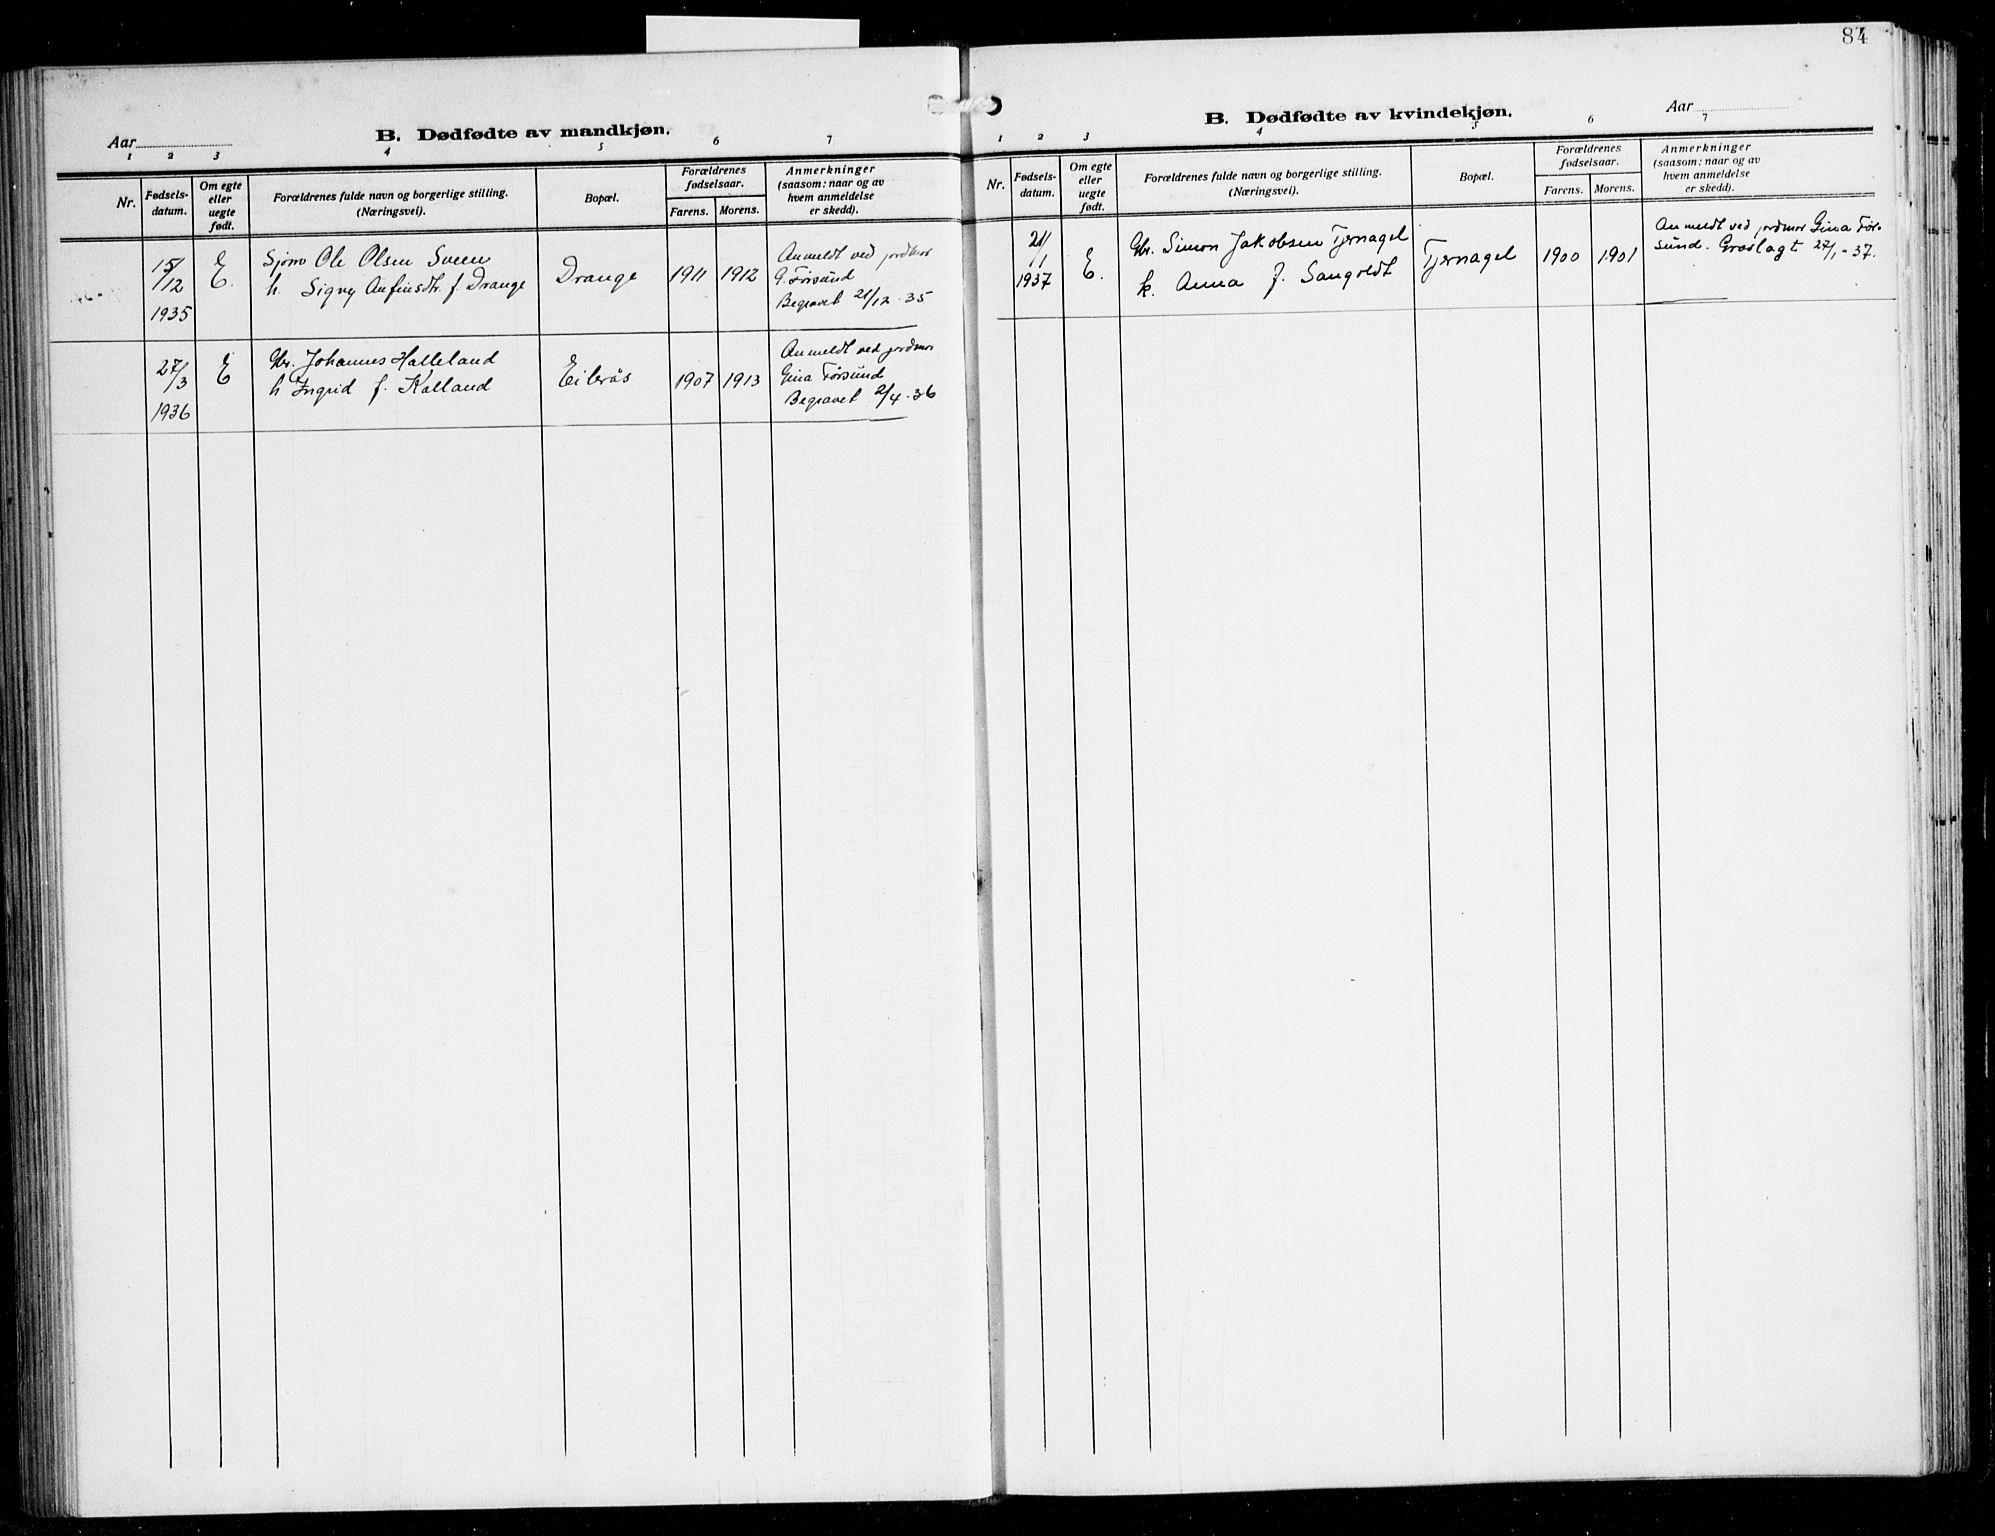 84
Aar
B. Dødfødte av mandkjøn.
1 2 3 4 5 6 7
Nr.
Fødsels-
datum.
Om egte
eller
uegte
født.
Forældrenes fulde navn og borgerlige stilling.
(Næringsvei).
Bopæl.
Forældrenes
fødselsaar.
Farens. Morens.
Anmerkninger
(saasom: naar og av
hvem anmeldelse
er skedd).
15/12
1935
E.
Sjøm Ole Olsen Sveen
h. Signy Anfinsdtr. f. Drange
Drange
1911 1912
Anmeldt ved jordmor
G. Førsund
Begravet 21/12 · 35
27/3
1936
E
Gbr. Johannes Halleland
h Ingrid f. Kalland
Eilerås
1907 1913
Anmeldt ved jordmor
Gina Førsund
Begravet 2/4 · 36
B. Dødfødte av kvindekjøn.
Aar
1 2 3 4 5 6 7
Nr.
Fødsels-
datum.
Om egte
eller
uegte
født.
Forældrenes fulde navn og borgerlige stilling.
(Næringsvei).
Bopæl.
Forældrenes
fødselsaar.
Farens. Morens.
Anmerkninger
(saasom: naar og av
hvem anmeldelse
er skedd).
21/1
1937
E.
Gbr. Simon Jakobsen Tjernagel
k. Anna f. Sangoldt
Tjernagel
1900 1901
Anmeldt ved jordmor Gina Før-
sund. Gravlagt 27/1 - 37.